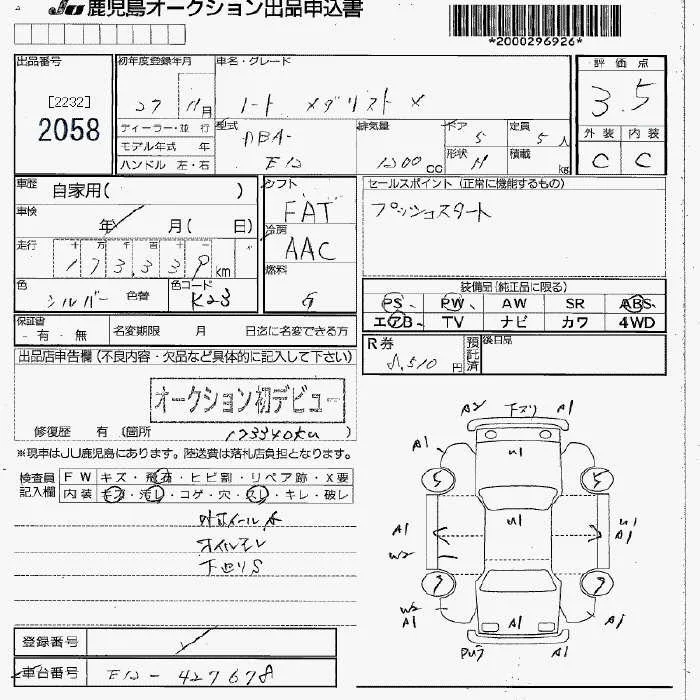 JU 鹿児島オークション出品申込書
*2000296926*
出品番号
[2232]
2058
初年度登録年月
27 11月
車名・グレード
ノート メダリスト X
評価点
3.5
外装 内装
C C
ディーラー・並 行
モデル年式 年
ハンドル 左・右
型式
DBA-
E12
排気量
1200 cc
ドア
5
定員
5人
形状 H
積載 kg
車歴
自家用( )
車検
年 月( 日)
走行
十 万 千 百 十
173,339 km
色
シルバー 色替
色コード
K23
シフト
FAT
冷房
AAC
燃料
G
セールスポイント (正常に機能するもの)
プッシュスタート
装備品(純正品に限る)
PS PW AW SR ABS
エアB TV ナビ カワ 4WD
保証書
有・無
名変期限 月 日迄に名変できる方
R券
8,510円
預託済
後日品
出品店申告欄(不良内容・欠品など具体的に記入して下さい)
オークション初デビュー
修復歴 有 (箇所 173340km )
※現車はJU鹿児島にあります。陸送費は落札店負担となります。
検査員記入欄
FW キズ・飛石・ヒビ割・リペア跡・X要
内装 キズ・汚レ・コゲ・穴・スレ・キレ・破レ
オイルモレ
下回りS
A2 下ズリ A1
A1 U1
5 5
A1 U1 U1
W2 A1
7 7
W2
A1 A1 A1
登録番号
車台番号 E12-427678